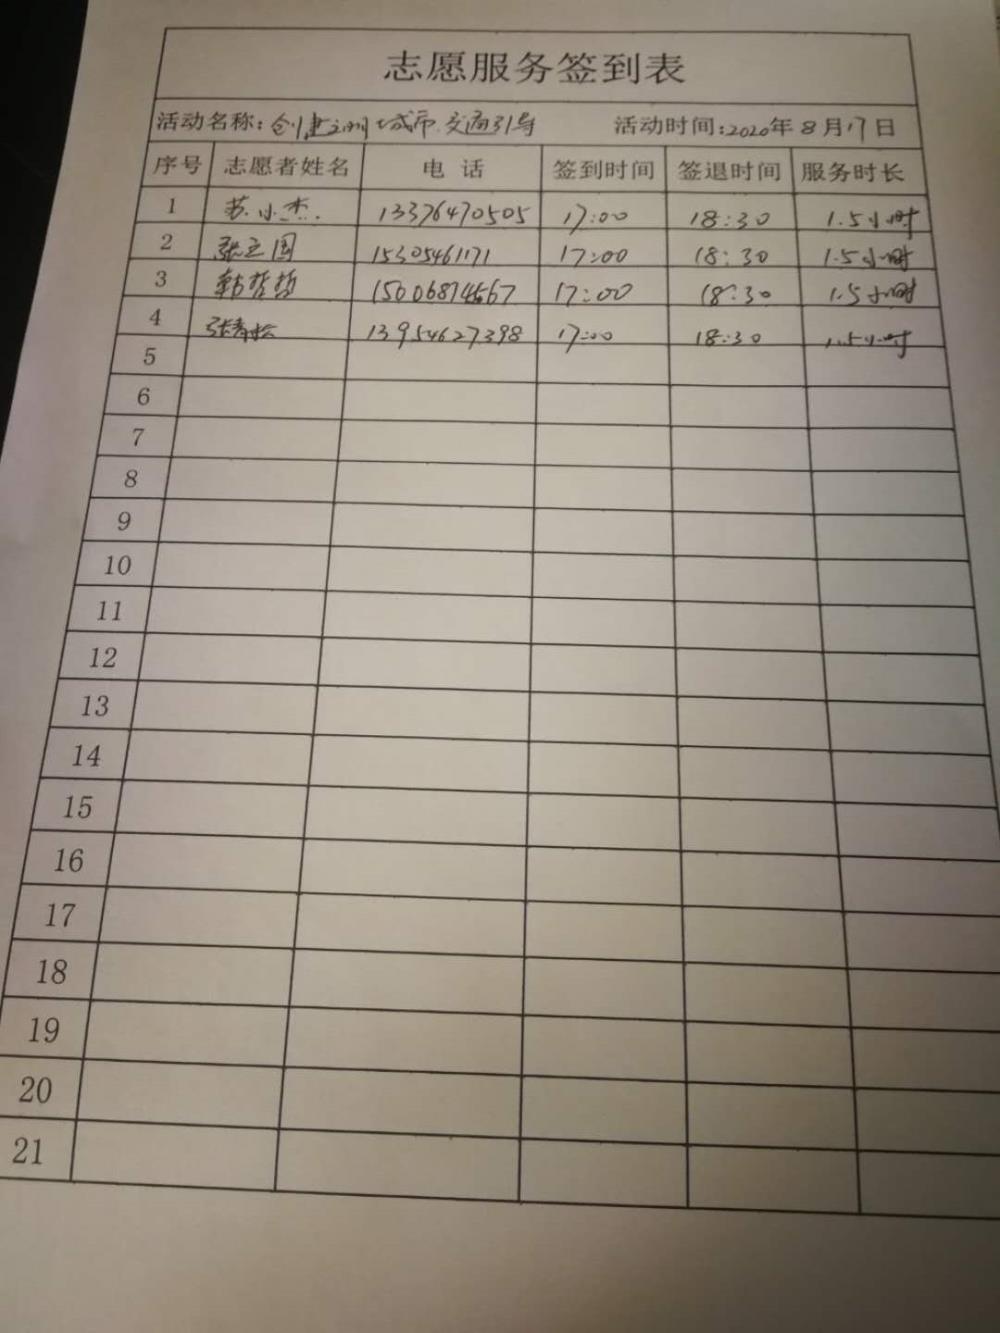 志愿服务签到表
活动名称：创建文明城市交通引导 活动时间：2020年8月17日
序号 志愿者姓名 电话 签到时间 签退时间 服务时长
1 苏小杰 13376470505 17:00 18:30 1.5小时
2 张立国 15305461171 17:00 18:30 1.5小时
3 韩哲哲 15006874567 17:00 18:30 1.5小时
4 13954627398 17:00 18:30 1.5小时
5
6
7
8
9
10
11
12
13
14
15
16
17
18
19
20
21